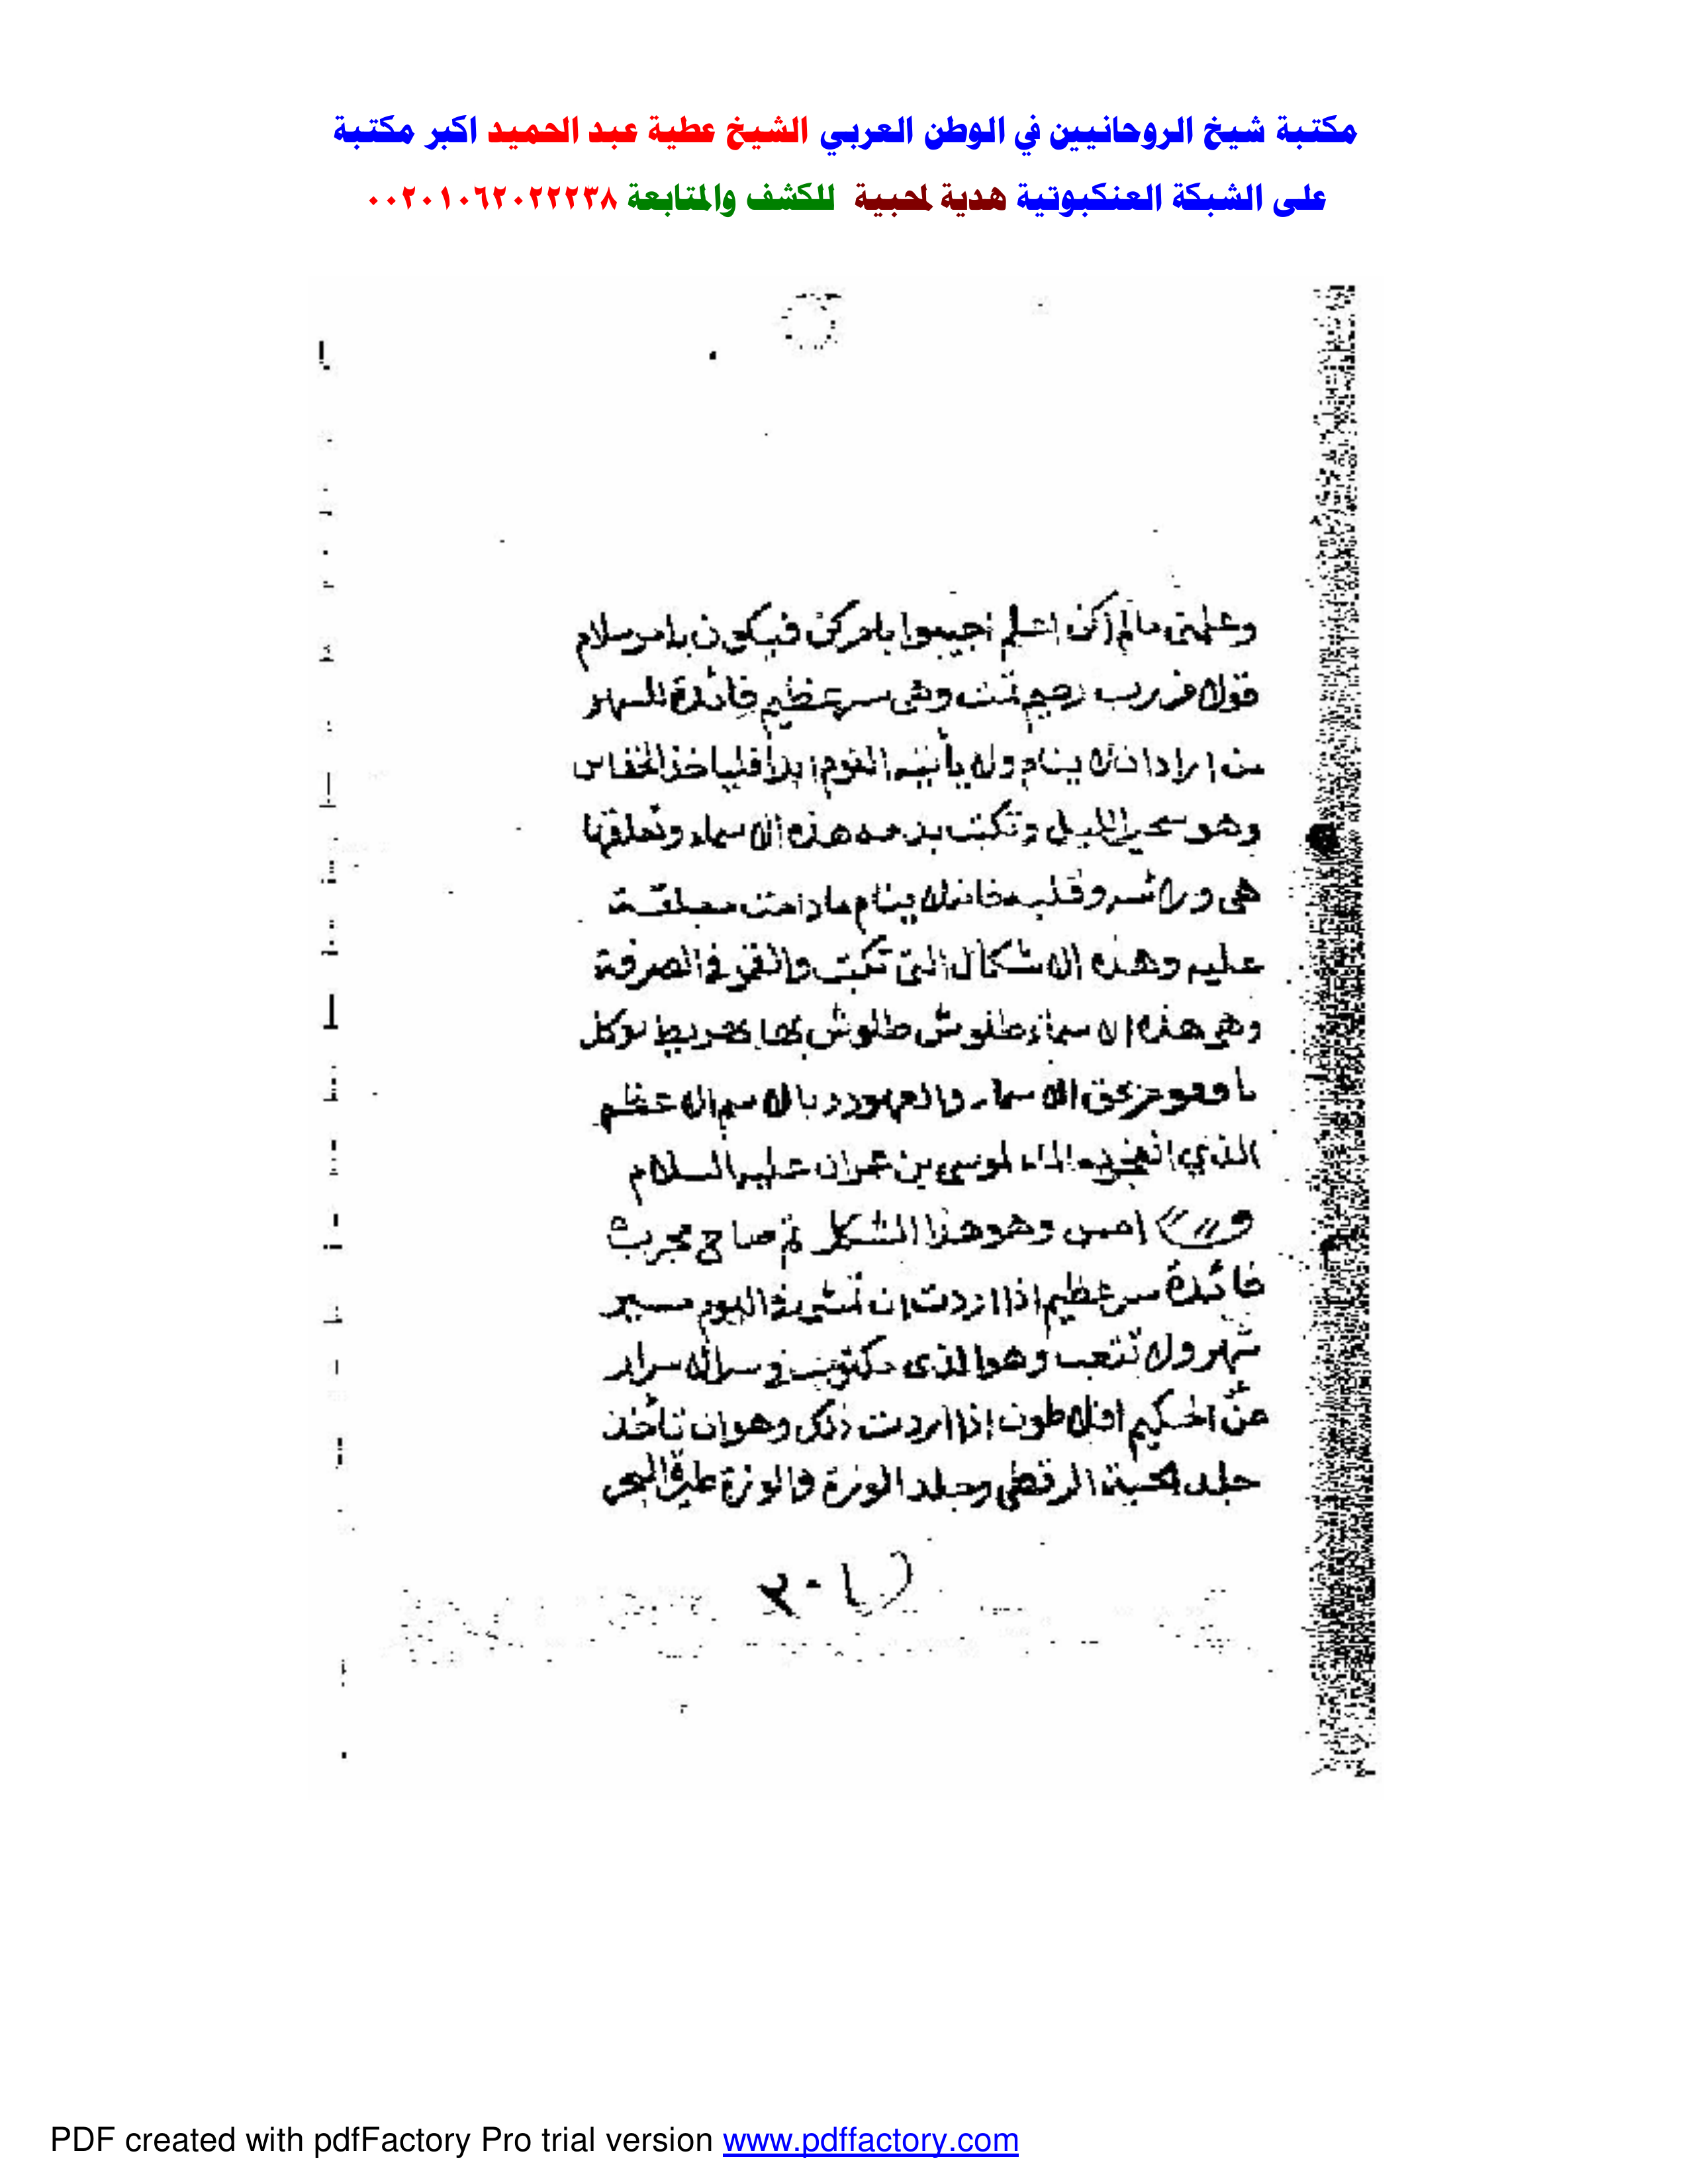 مكتبة شيخ الروحانيين في الوطن العربي الشيخ عطية عبد الحميد اكبر مكتبة
على الشبكة العنكبوتية هدية لمحبية للكشف والمتابعة ٠٠٢٠١٠٦٢٠٢٢٢٣٨
وعلمتني مالم اكن اعلم اجيبوا بامر كن فيكون بامر سلام
قولا من رب رحيم تمت وهي سر عظيم فائدة للسهر
من اراد ان لا ينام ولا يأتيه النوم ابدا فلياخذ الخفاس
وهو سحير الليل وتكتب بدمه هذه الاسماء وتعلقها
هي وراسه وقلبه فانه لا ينام مادامت معلقة
عليه وهذه الاشكال التي تكتب والتي في الصرفة
وهي هذه الاسماء طلوش طلوش توكل
بحق الاسماء والعهود وبالاسم الاعظم
الذي انفجر به الماء لموسى بن عمران عليه السلام
امين وهو هذا الشكل تم صاح مجرب
فائدة سر عظيم اذا اردت ان تمشي في اليوم مسير
شهر ولا تتعب وهو الذي مكتوب في سر الاسرار
عن الحكيم افلاطون اذا اردت ذلك وهو ان تأخذ
جلد الحية الرقطى وجلد الوزة والوزة طير البحر
PDF created with pdfFactory Pro trial version www.pdffactory.com